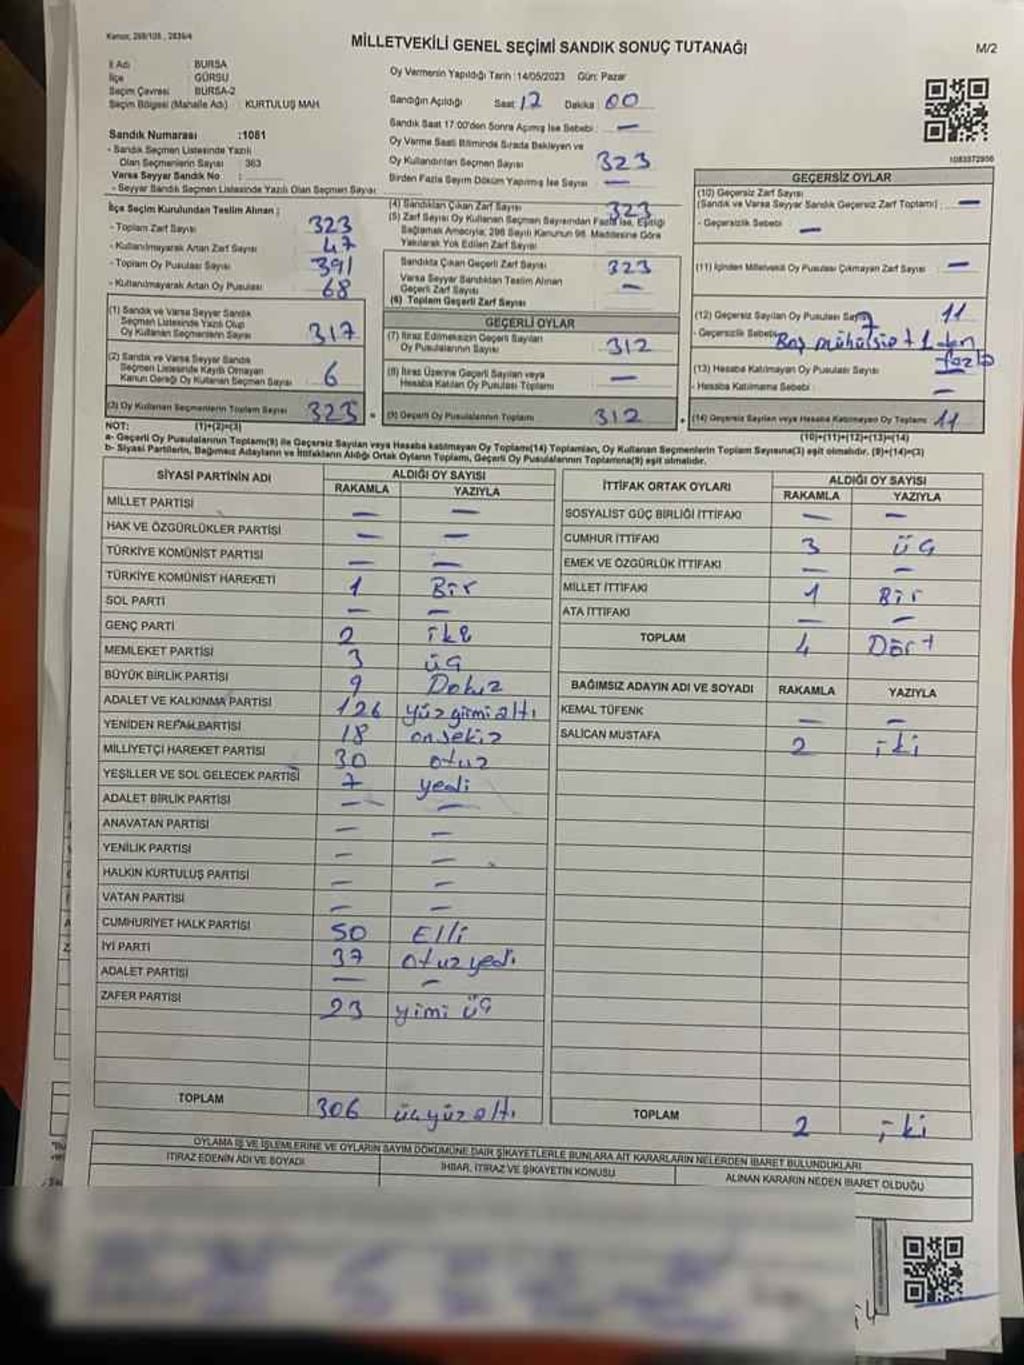 Kanun, 298/105 , 2839/4
MİLLETVEKİLİ GENEL SEÇİMİ SANDIK SONUÇ TUTANAĞI
M/2
İl Adı : BURSA
İlçe : GÜRSU
Seçim Çevresi : BURSA-2
Seçim Bölgesi (Mahalle Adı) : KURTULUŞ MAH.
Sandık Numarası :1081
- Sandık Seçmen Listesinde Yazılı
Olan Seçmenlerin Sayısı : 363
Varsa Seyyar Sandık No :
- Seyyar Sandık Seçmen Listesinde Yazılı Olan Seçmen Sayısı :
Oy Vermenin Yapıldığı Tarih :14/05/2023 Gün: Pazar
Sandığın Açıldığı Saat: 17 Dakika: 00
Sandık Saat 17:00'den Sonra Açılmış İse Sebebi : —
Oy Verme Saati Bitiminde Sırada Bekleyen ve
Oy Kullandırılan Seçmen Sayısı 323
Birden Fazla Sayım Döküm Yapılmış İse Sayısı —
1083372906
İlçe Seçim Kurulundan Teslim Alınan ;
- Toplam Zarf Sayısı 323
- Kullanılmayarak Artan Zarf Sayısı 47
- Toplam Oy Pusulası Sayısı 391
- Kullanılmayarak Artan Oy Pusulası 68
(1) Sandık ve Varsa Seyyar Sandık
Seçmen Listesinde Yazılı Olup
Oy Kullanan Seçmenlerin Sayısı 317
(2) Sandık ve Varsa Seyyar Sandık
Seçmen Listesinde Kayıtlı Olmayan
Kanun Gereği Oy Kullanan Seçmen Sayısı 6
(3) Oy Kullanan Seçmenlerin Toplam Sayısı 323
(1)+(2)=(3)
(4) Sandıktan Çıkan Zarf Sayısı 323
(5) Zarf Sayısı Oy Kullanan Seçmen Sayısından Fazla İse, Eşitliği
Sağlamak Amacıyla; 298 Sayılı Kanunun 98. Maddesine Göre
Yakılarak Yok Edilen Zarf Sayısı
Sandıkta Çıkan Geçerli Zarf Sayısı 323
Varsa Seyyar Sandıktan Teslim Alınan
Geçerli Zarf Sayısı —
(6) Toplam Geçerli Zarf Sayısı
GEÇERLİ OYLAR
(7) İtiraz Edilmeksizin Geçerli Sayılan
Oy Pusulalarının Sayısı 312
(8) İtiraz Üzerine Geçerli Sayılan veya
Hesaba Katılan Oy Pusulası Toplamı —
(9) Geçerli Oy Pusulalarının Toplamı 312
GEÇERSİZ OYLAR
(10) Geçersiz Zarf Sayısı
(Sandık ve Varsa Seyyar Sandık Geçersiz Zarf Toplamı) : —
- Geçersizlik Sebebi : —
(11) İçinden Milletvekili Oy Pusulası Çıkmayan Zarf Sayısı —
(12) Geçersiz Sayılan Oy Pusulası Sayısı 11
- Geçersizlik Sebebi: Boş mühürsüz + 1 den
fazla
(13) Hesaba Katılmayan Oy Pusulası Sayısı
- Hesaba Katılmama Sebebi : —
(14) Geçersiz Sayılan veya Hesaba Katılmayan Oy Toplamı 11
(10)+(11)+(12)+(13)=(14)
NOT:
a- Geçerli Oy Pusulalarının Toplamı(9) ile Geçersiz Sayılan veya Hesaba katılmayan Oy Toplamı(14) Toplamları, Oy Kullanan Seçmenlerin Toplam Sayısına(3) eşit olmalıdır. (9)+(14)=(3)
b- Siyasi Partilerin, Bağımsız Adayların ve İttifakların Aldığı Ortak Oyların Toplamı, Geçerli Oy Pusulalarının Toplamına(9) eşit olmalıdır.
SİYASİ PARTİNİN ADI ALDIĞI OY SAYISI
RAKAMLA YAZIYLA
MİLLET PARTİSİ — —
HAK VE ÖZGÜRLÜKLER PARTİSİ — —
TÜRKİYE KOMÜNİST PARTİSİ — —
TÜRKİYE KOMÜNİST HAREKETİ 1 Bir
SOL PARTİ — —
GENÇ PARTİ 2 ike
MEMLEKET PARTİSİ 3 üç
BÜYÜK BİRLİK PARTİSİ 9 Dokuz
ADALET VE KALKINMA PARTİSİ 126 yüz yirmi altı
YENİDEN REFAH PARTİSİ 18 onsekiz
MİLLİYETÇİ HAREKET PARTİSİ 30 otuz
YEŞİLLER VE SOL GELECEK PARTİSİ 7 yedi
ADALET BİRLİK PARTİSİ — —
ANAVATAN PARTİSİ — —
YENİLİK PARTİSİ — —
HALKIN KURTULUŞ PARTİSİ — —
VATAN PARTİSİ — —
CUMHURİYET HALK PARTİSİ 50 Elli
İYİ PARTİ 37 otuz yedi
ADALET PARTİSİ — —
ZAFER PARTİSİ 23 yimi üç
TOPLAM 306 üçyüz altı
İTTİFAK ORTAK OYLARI ALDIĞI OY SAYISI
RAKAMLA YAZIYLA
SOSYALİST GÜÇ BİRLİĞİ İTTİFAKI — —
CUMHUR İTTİFAKI 3 üç
EMEK VE ÖZGÜRLÜK İTTİFAKI — —
MİLLET İTTİFAKI 1 Bir
ATA İTTİFAKI — —
TOPLAM 4 Dört
BAĞIMSIZ ADAYIN ADI VE SOYADI RAKAMLA YAZIYLA
KEMAL TÜFENK — —
SALİCAN MUSTAFA 2 iki
TOPLAM 2 iki
OYLAMA İŞ VE İŞLEMLERİNE VE OYLARIN SAYIM DÖKÜMÜNE DAİR ŞİKAYETLERLE BUNLARA AİT KARARLARIN NELERDEN İBARET BULUNDUKLARI
İTİRAZ EDENİN ADI VE SOYADI İHBAR, İTİRAZ VE ŞİKAYETİN KONUSU ALINAN KARARIN NEDEN İBARET OLDUĞU